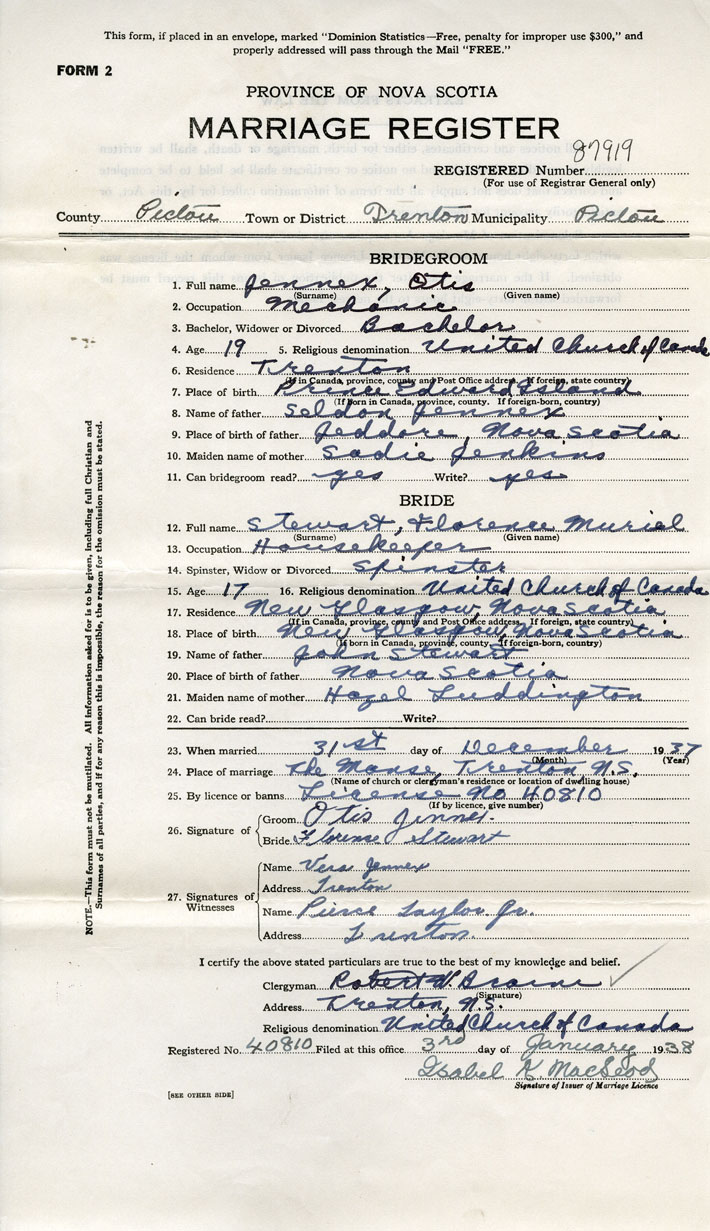 This form, if placed in an envelope, marked "Dominion Statistics—Free, penalty for improper use $300," and
properly addressed will pass through the Mail "FREE."
FORM 2
PROVINCE OF NOVA SCOTIA
MARRIAGE REGISTER
87919
REGISTERED Number
(For use of Registrar General only)
County Pictou Town or District Trenton Municipality Pictou
BRIDEGROOM
1. Full name Jennex, Otis
(Surname) (Given name)
2. Occupation Mechanic
3. Bachelor, Widower or Divorced Bachelor
4. Age 19 5. Religious denomination United Church of Canada
6. Residence Trenton
(If in Canada, province, county and Post Office address. If foreign, state country)
7. Place of birth Prince Edward Island
(If born in Canada, province, county. If foreign-born, country)
8. Name of father Seldon Jennex
9. Place of birth of father Jeddore, Nova Scotia
10. Maiden name of mother Sadie Jenkins
11. Can bridegroom read? yes Write? yes
BRIDE
12. Full name Stewart, Florence Muriel
(Surname) (Given name)
13. Occupation Housekeeper
14. Spinster, Widow or Divorced Spinster
15. Age 17 16. Religious denomination United Church of Canada
17. Residence New Glasgow, Nova Scotia
(If in Canada, province, county and Post Office address. If foreign, state country)
18. Place of birth New Glasgow, Nova Scotia
(If born in Canada, province, county. If foreign-born, country)
19. Name of father John Stewart
20. Place of birth of father Nova Scotia
21. Maiden name of mother Hazel Luddington
22. Can bride read? Write?
23. When married 31st day of December 1937
(Month) (Year)
24. Place of marriage The Manse, Trenton N.S.
(Name of church or clergyman's residence or location of dwelling house)
25. By licence or banns License No 40810
(If by licence, give number)
26. Signature of
Groom Otis Jennex.
Bride Florence Stewart
27. Signatures of Witnesses
Name Vera Jennex
Address Trenton
Name Pierce Taylor Jr.
Address Trenton.
I certify the above stated particulars are true to the best of my knowledge and belief.
Clergyman Robert W.
(Signature)
Address Trenton, N.S.
Religious denomination United Church of Canada
Registered No. 40810 Filed at this office 3rd day of January 1938
Isabel K MacLeod
Signature of Issuer of Marriage Licence
[SEE OTHER SIDE]
NOTE.—This form must not be mutilated. All information asked for is to be given, including full Christian and
Surnames of all parties, and if for any reason this is impossible, the reason for the omission must be stated.